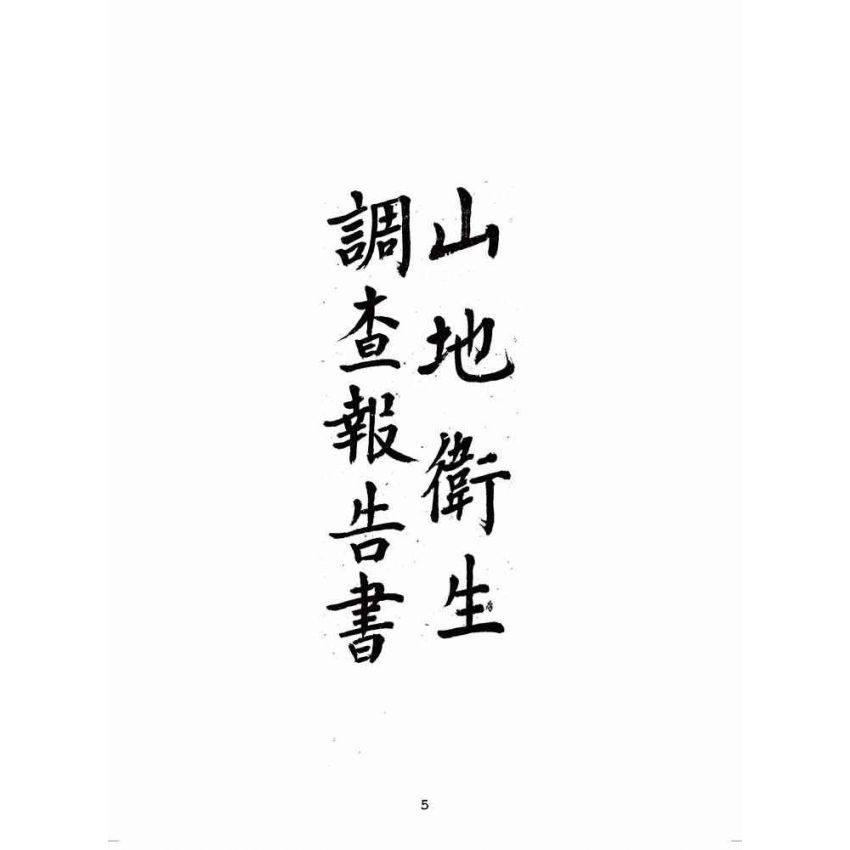 山地衛生
調查報告書
5